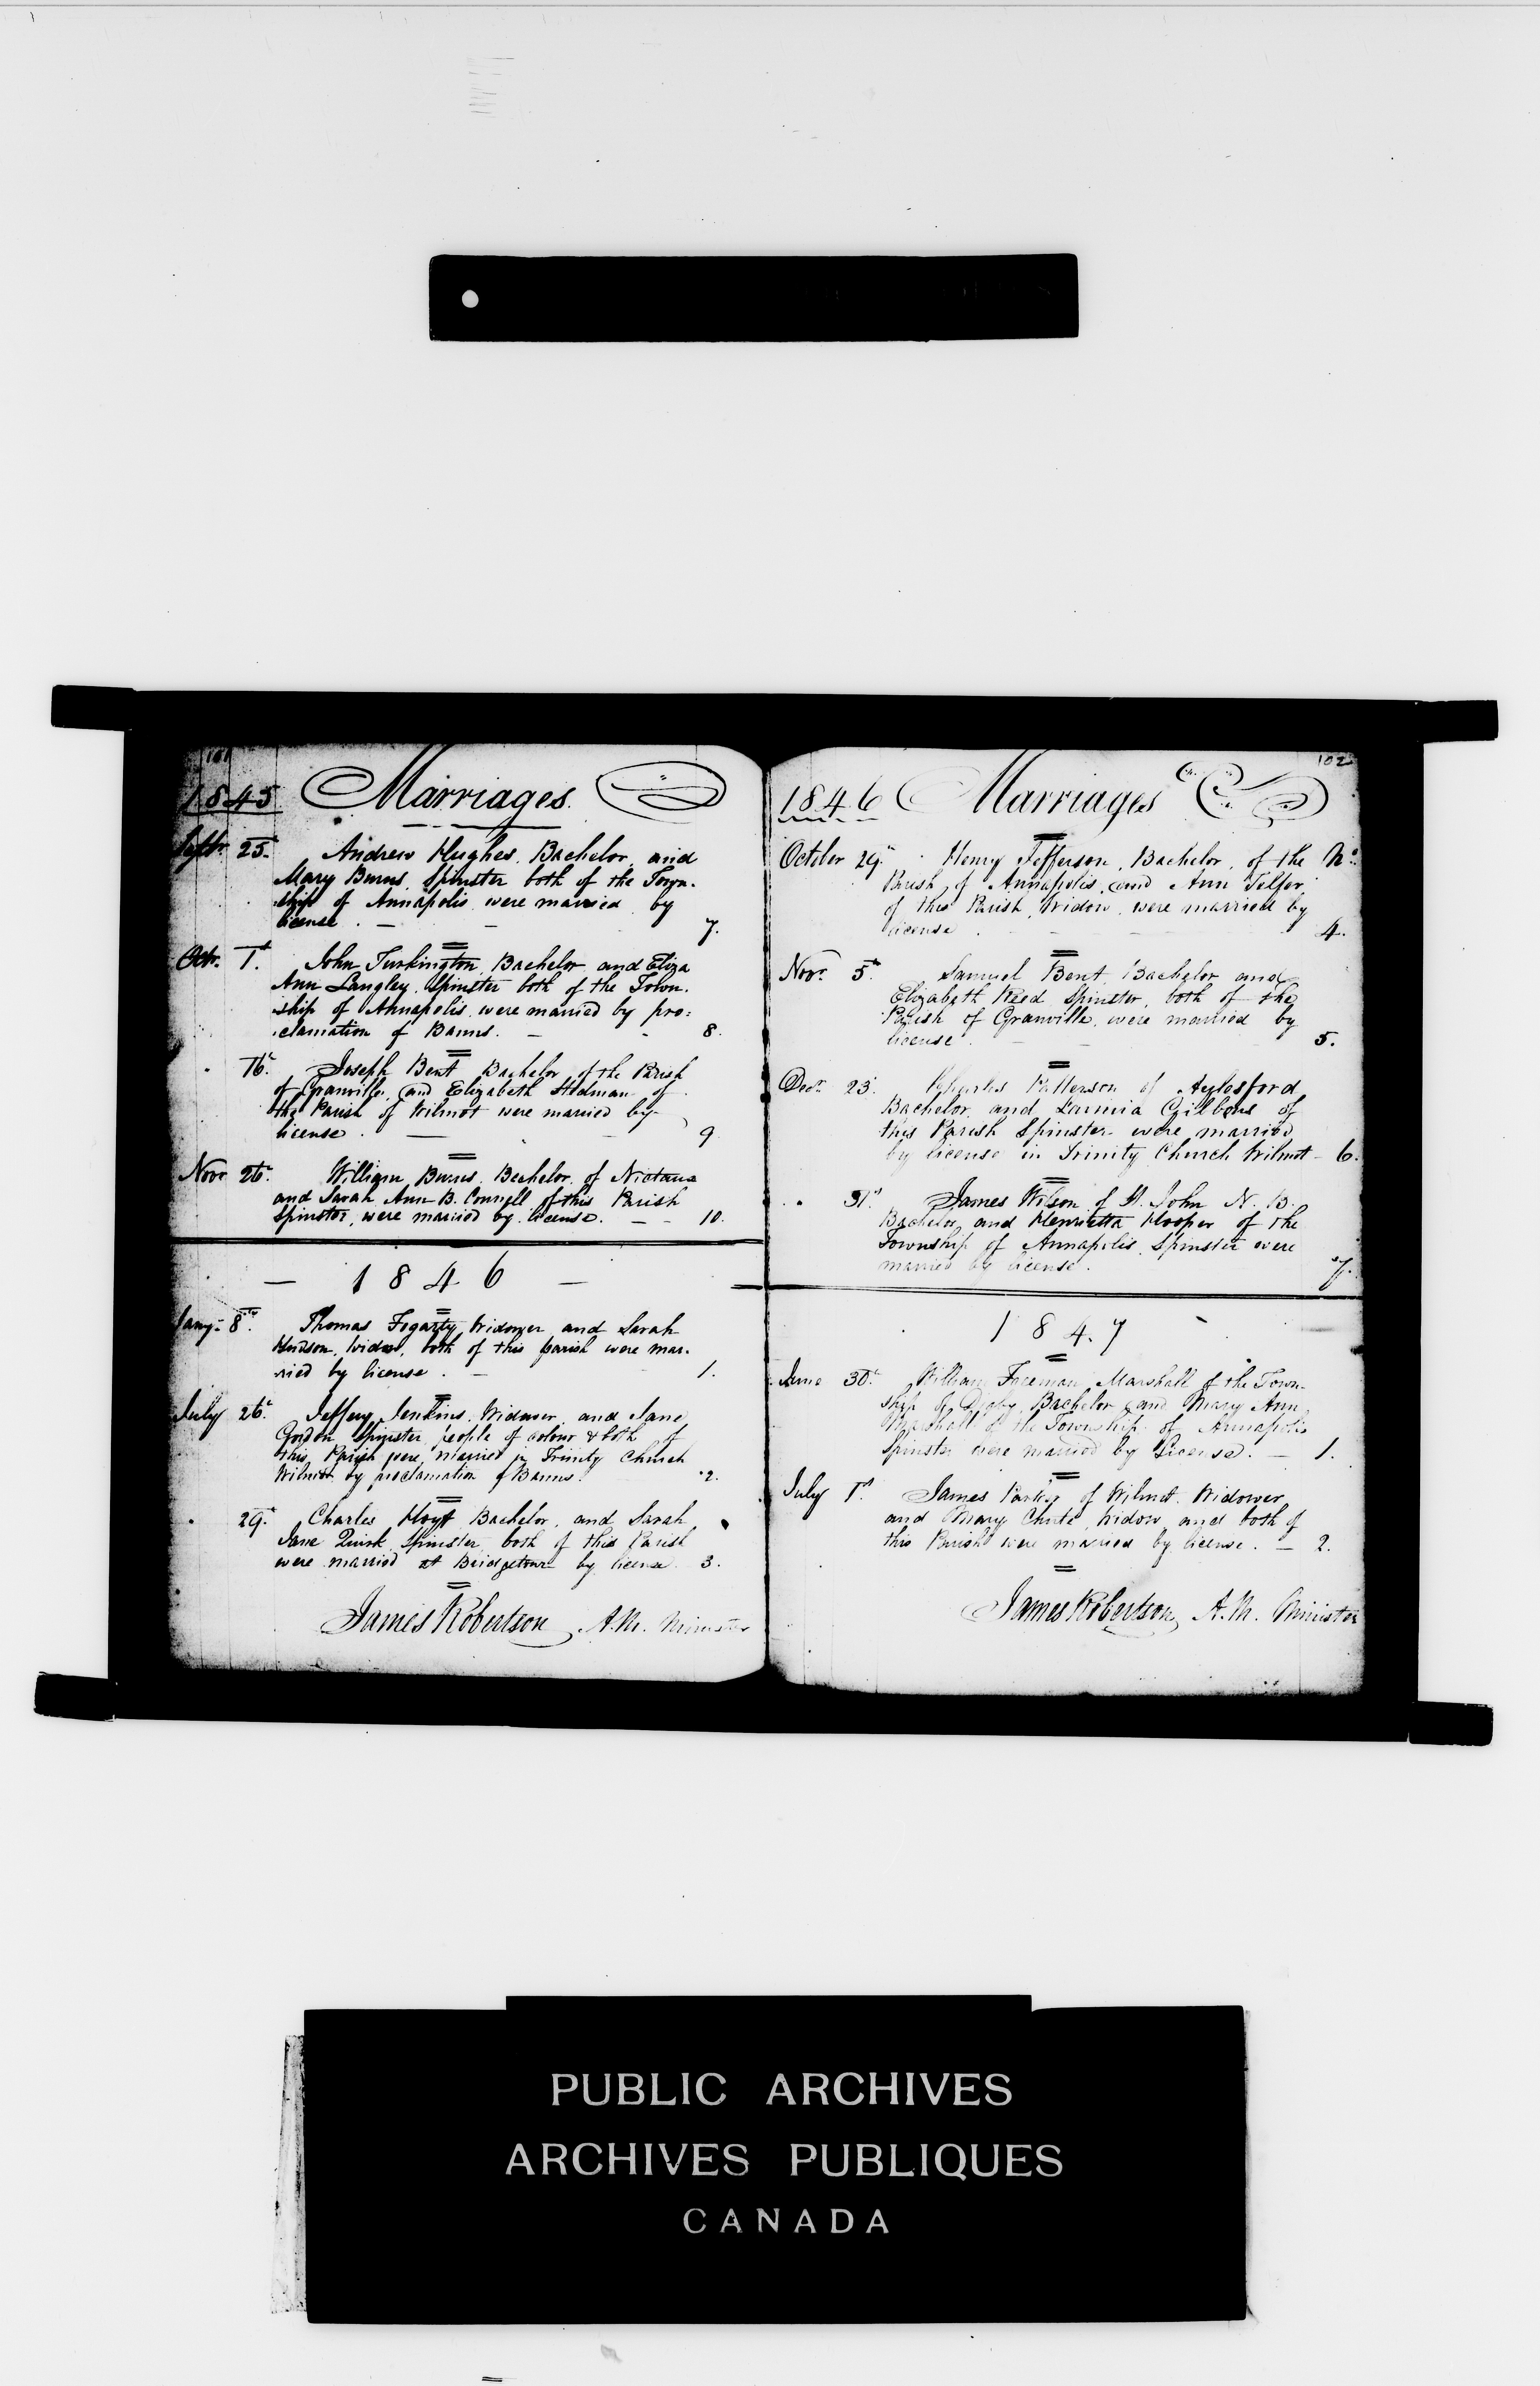 101
1845 Marriages.
Septr. 25. Andrew Hughes, Bachelor, and
Mary Burns, Spinster both of the Town-
ship of Annapolis were married by
license. 7.
Octr. 1st. John Turkington, Bachelor and Eliza
Ann Langley, Spinster both of the Town-
ship of Annapolis were married by pro=
clamation of Banns. 8.
16th. Joseph Bent Bachelor of the Parish
of Granville, and Elizabeth Stedman of
the Parish of Wilmot were married by
license. 9
Novr 26th. William Burns, Bachelor, of Nictaux
and Sarah Ann B. Connell of this Parish
Spinster, were married by license. 10.
1846
Jany. 8th. Thomas Fogarty, Widower and Sarah
Hudson, widow, both of this parish were mar-
ried by license. 1.
July 26th. Jeffery Jenkins, Widower, and Jane
Gordon Spinster people of colour & both of
this Parish were married in Trinity Church
Wilmot by proclamation of Banns. 2.
29th. Charles Hoyt Bachelor, and Sarah
Jane Quirk Spinster both of this Parish
were married at Bridgetown by license 3.
James Robertson, A.M. Minister
102
1846 Marriages
October 29th. Henry Jefferson, Bachelor, of the No.
Parish of Annapolis, and Ann Telfer,
of this Parish, Widow, were married by
license 4.
Novr. 5th. Samuel Bent, Bachelor and
Elizabeth Reed Spinster, both of the
Parish of Granville, were married by
license. 5.
Decr. 23d. Charles Patterson of Aylesford
Bachelor, and Gibbons of
this Parish Spinster were married
by license in Trinity Church Wilmot - 6.
31st. James Wilson of St. John N. B.
Bachelor, and Henrietta Hooper of the
Township of Annapolis, Spinster were
married by license. 7.
1847
June 30th. William Foreman Marshall of the Town-
ship of Digby, Bachelor, and Mary Ann
Marshall of the Township of Annapolis
Spinster were married by License. 1.
July 1st. James Parker of Wilmot, Widower
and Mary Chute, Widow, and both of
this Parish were married by license. 2.
James Robertson, A.M. Minister
PUBLIC ARCHIVES
ARCHIVES PUBLIQUES
CANADA